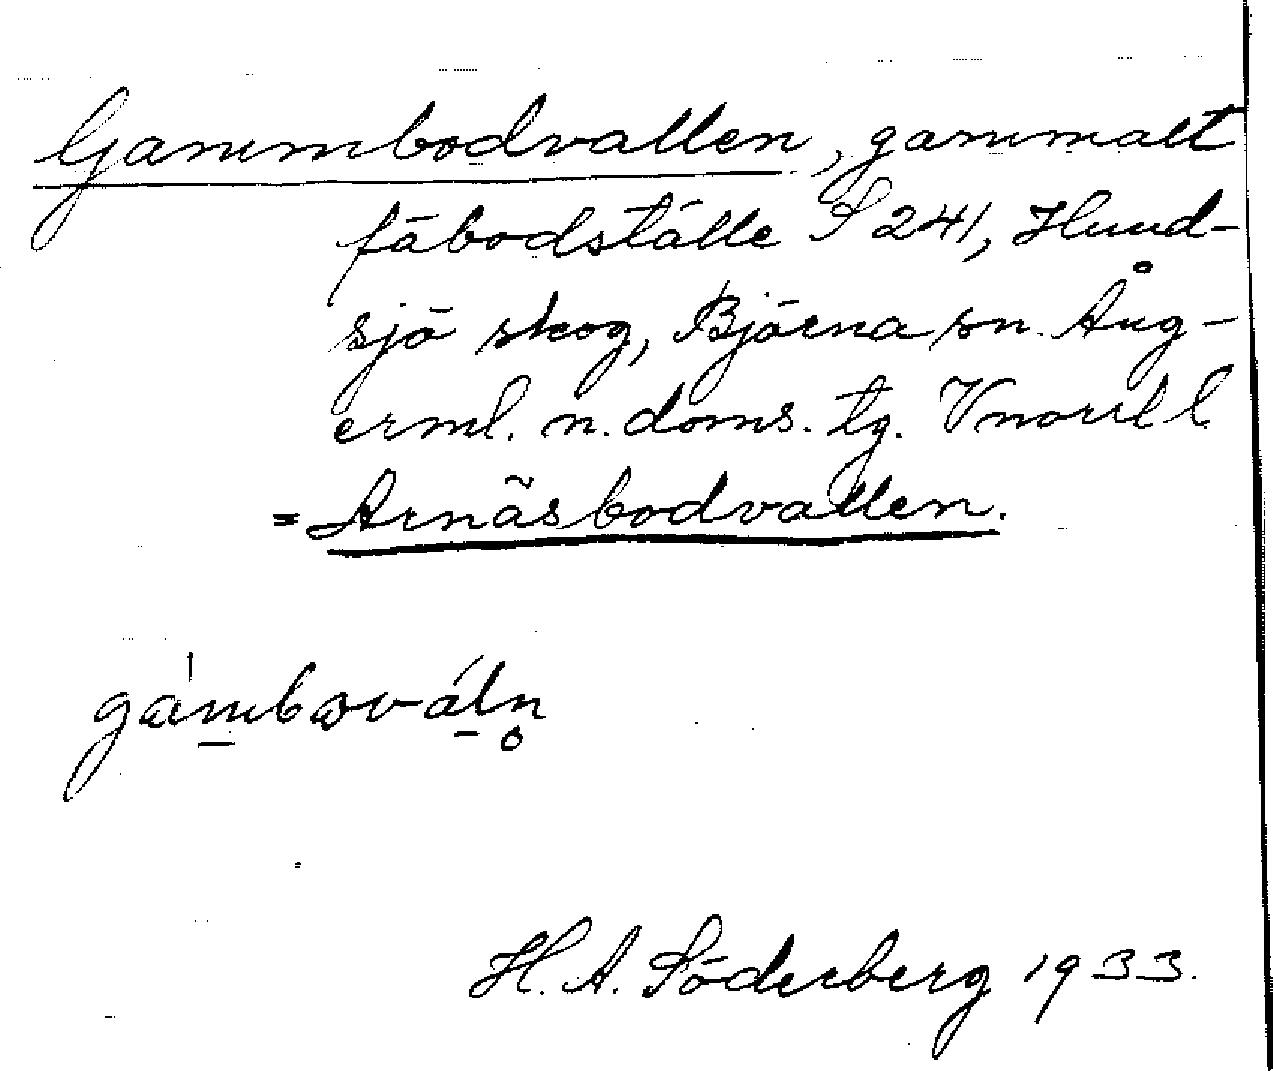 Gammbodvallen, gammalt
fäbodställe S 241, Hund-
sjö skog, Björna sn. Ång-
erml. n. doms. tg. Vnorrl l
= Arnäsbodvallen.
gámbovál̥n̥
H. A. Söderberg 1933.